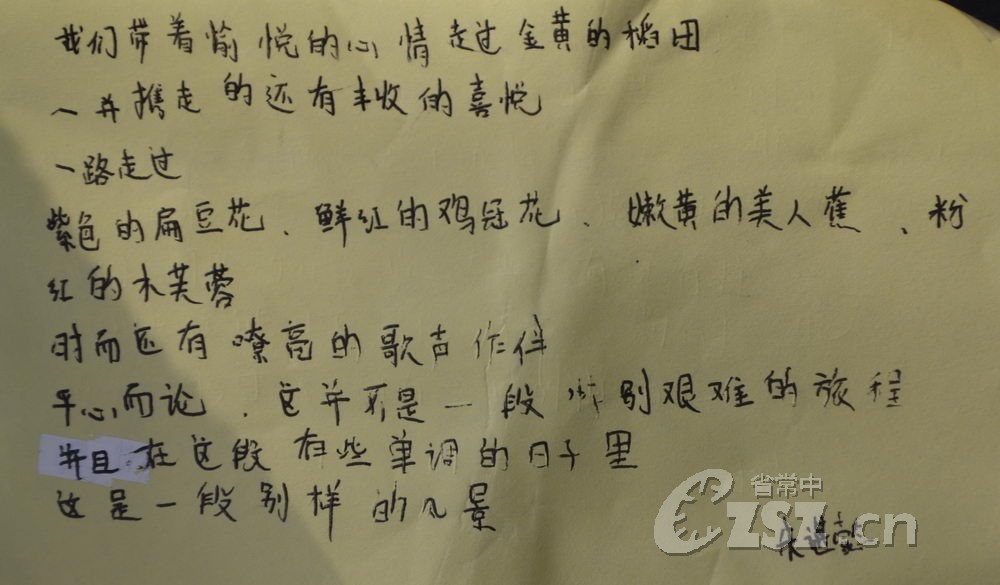 我们带着愉悦的心情走过金黄的稻田
一并携走的还有丰收的喜悦
一路走过
紫色的扁豆花、鲜红的鸡冠花、嫩黄的美人蕉、粉
红的木芙蓉
时而还有嘹亮的歌声作伴
平心而论、这并不是一段特别艰难的旅程
并且在这段有些单调的日子里
这是一段别样的风景
朱进
省常中
CZSZ.cn